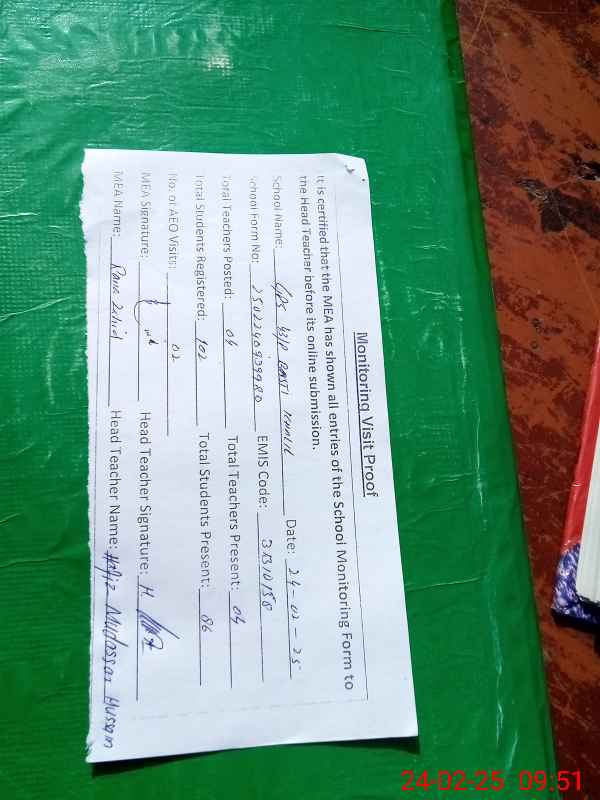 Monitoring Visit Proof
It is certified that the MEA has shown all entries of the School Monitoring Form to
the Head Teacher before its online submission.
School Name: GPS 43/P BASTI Date: 24-02-25
School Form No: 2502240939980 EMIS Code: 31310158
Total Teachers Posted: 04 Total Teachers Present: 04
Total Students Registered: 102 Total Students Present: 86
No. of AEO Visits: 02
MEA Signature: Head Teacher Signature: H.
MEA Name: Rana Zahid Head Teacher Name: Hafiz Mudassar Hussain
24-02-25 09:51